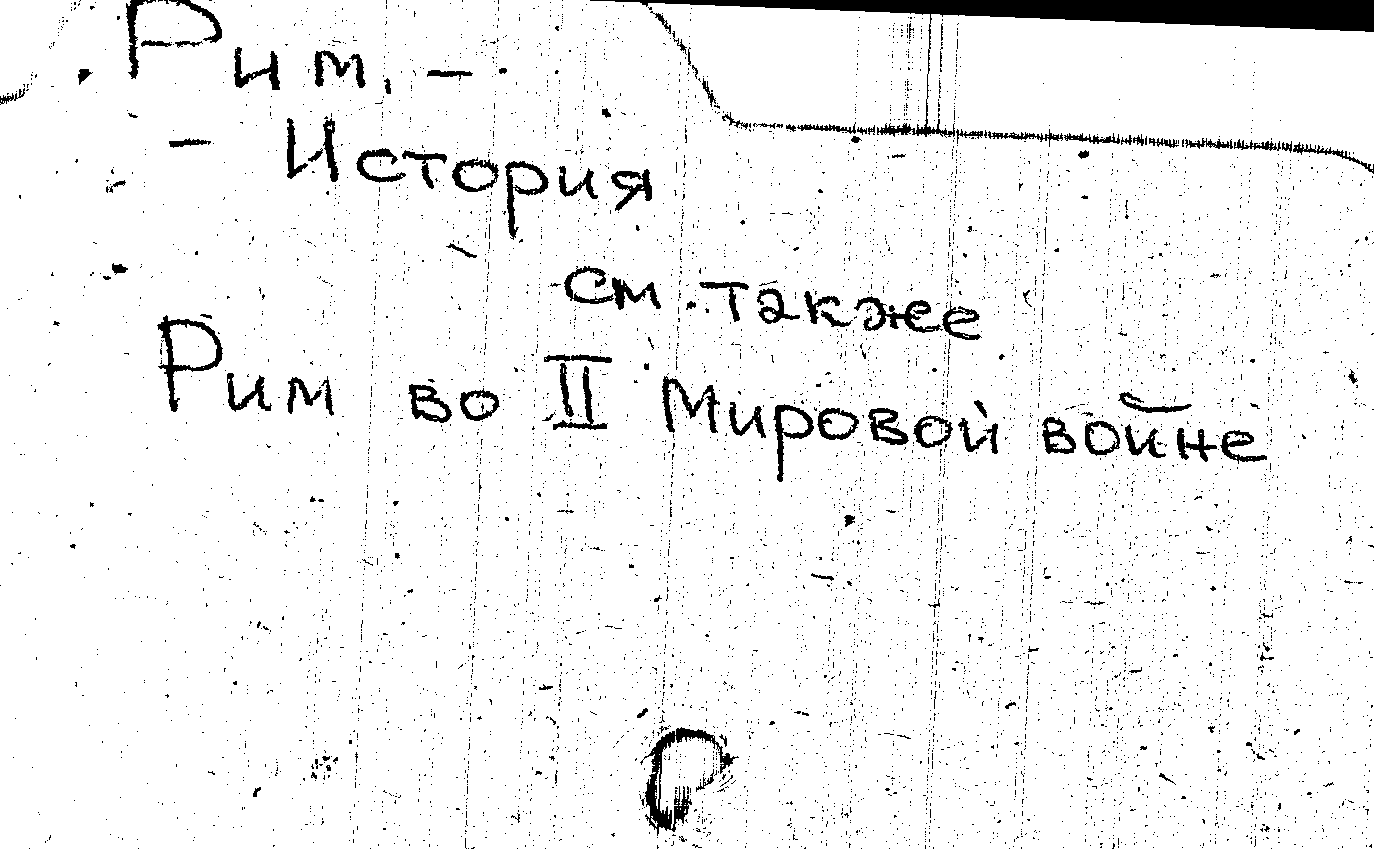 Рим, -
- История
см. также
Рим во II Мировой войне